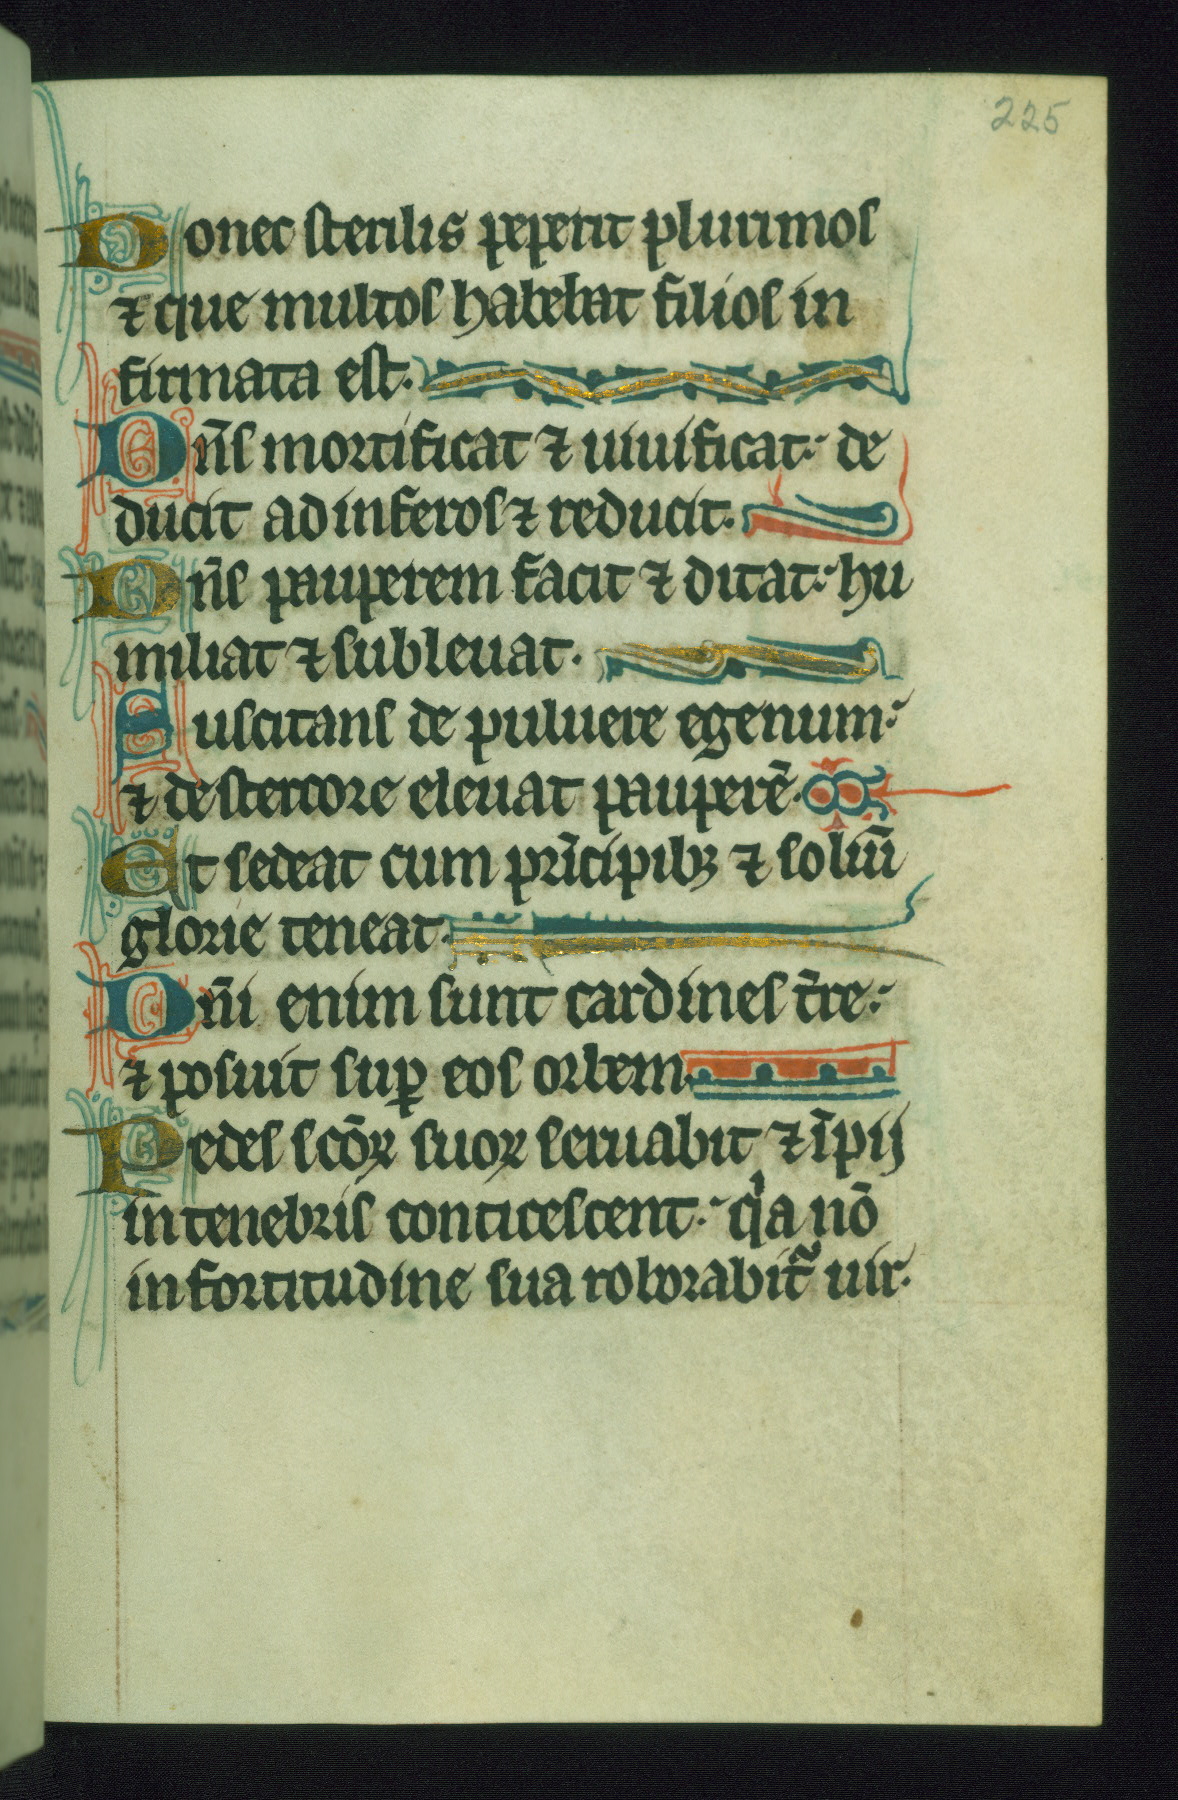 225
Donec sterilis peperit plurimos
⁊ que multos habebat filios in
firmata est.
Dn̄s mortificat ⁊ uiuificat: de
ducit ad inferos ⁊ reducit.
Dn̄s pauperem facit ⁊ ditat: hu
miliat ⁊ subleuat.
Suscitans de puluere egenum:
⁊ de stercore eleuat pauperē.
Et sedeat cum prīcipibꝫ ⁊ soliū
glorie teneat.
Dn̄i enim sunt cardines t̄re:
⁊ posuit suꝑ eos orbem.
Pedes scōꝝ suoꝝ seruabit ⁊ īpij
in tenebris conticescent: qia nō
in fortitudine sua roborabit᷑ uir.